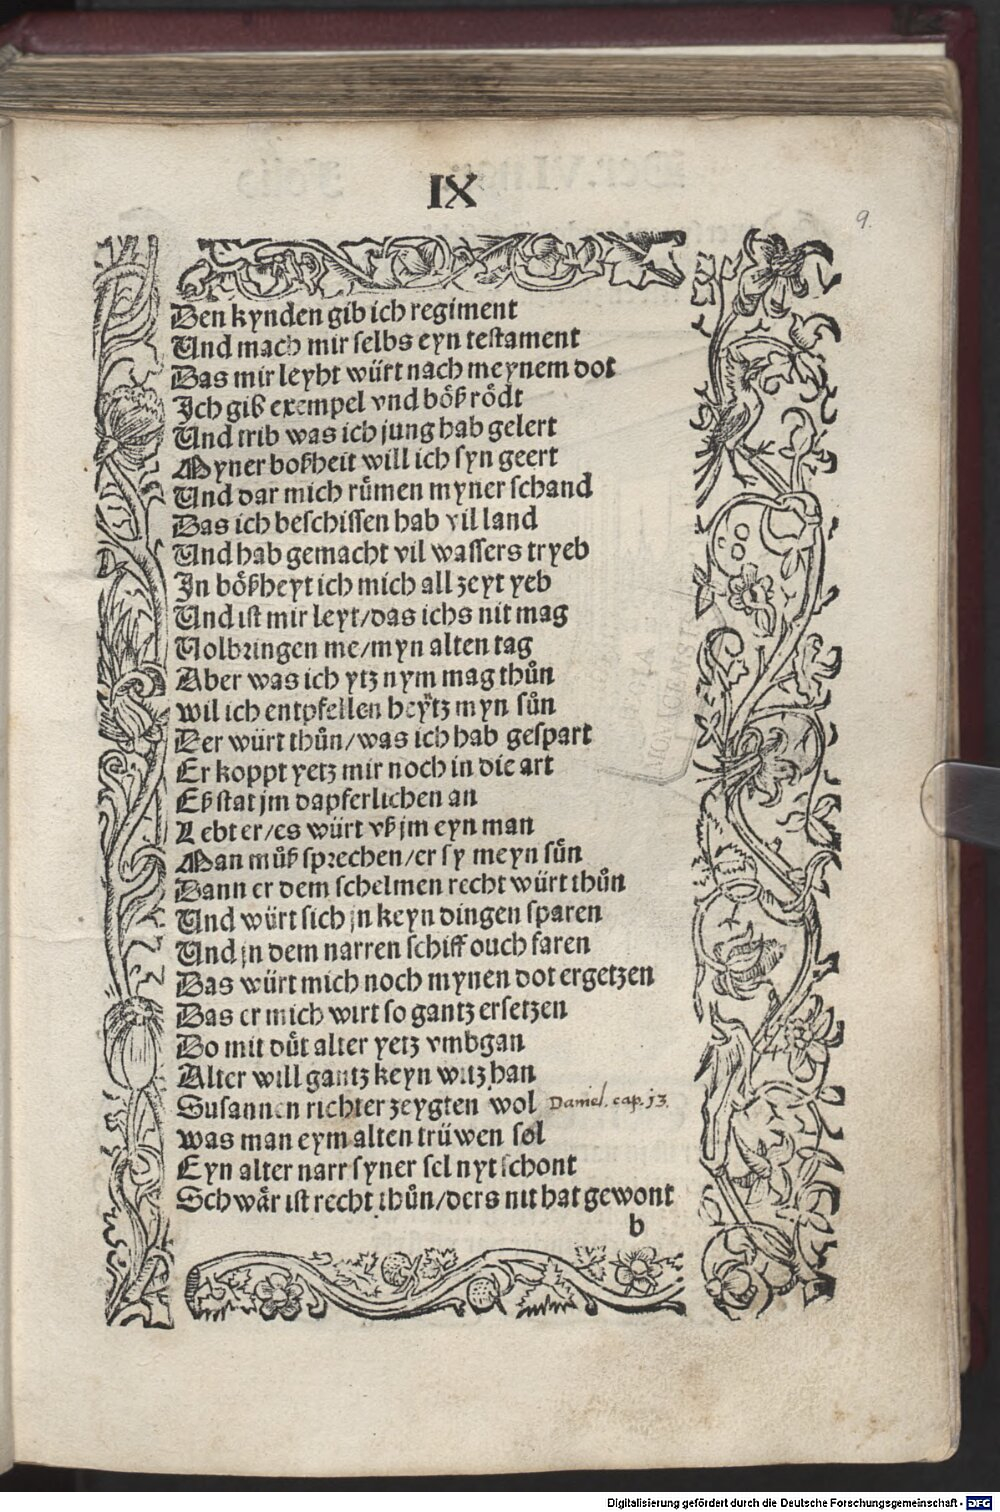 IX
9.
Den kynden gib ich regiment
Und mach mir selbs eyn testament
Das mir leyht würt nach meynem dot
Ich giß exempel vnd bößrödt
Und trib was ich jung hab gelert
Myner boßheit will ich syn geert
Und dar mich růmen myner schand
Das ich beschissen hab vil land
Und hab gemacht vil wassers tryeb
In bößheyt ich mich all zeyt yeb
Und ist mir leyt/das ichs nit mag
Volbringen me/myn alten tag
Aber was ich ytz nym mag thůn
wil ich entpfellen heytz myn sůn
Der würt thůn/was ich hab gespart
Er koppt yetz mir noch in die art
Eß stat jm dapferlichen an
Lebt er/es würt vß jm eyn man
Man můß sprechen/er sy meyn sůn
Dann er dem schelmen recht würt thůn
Und würt sich jn keyn dingen sparen
Und jn dem narren schiff ouch faren
Das würt mich noch mynen dot ergetzen
Das er mich wirt so gantz ersetzen
Do mit důt alter yetz vmbgan
Alter will gantz keyn witz han
Susannen richter zeygten wol Daniel. cap. 13.
was man eym alten trüwen sol
Eyn alter narr syner sel nyt schont
Schwär ist recht thůn/ders nit hat gewont
b
Digitalisierung gefördert durch die Deutsche Forschungsgemeinschaft - DFG